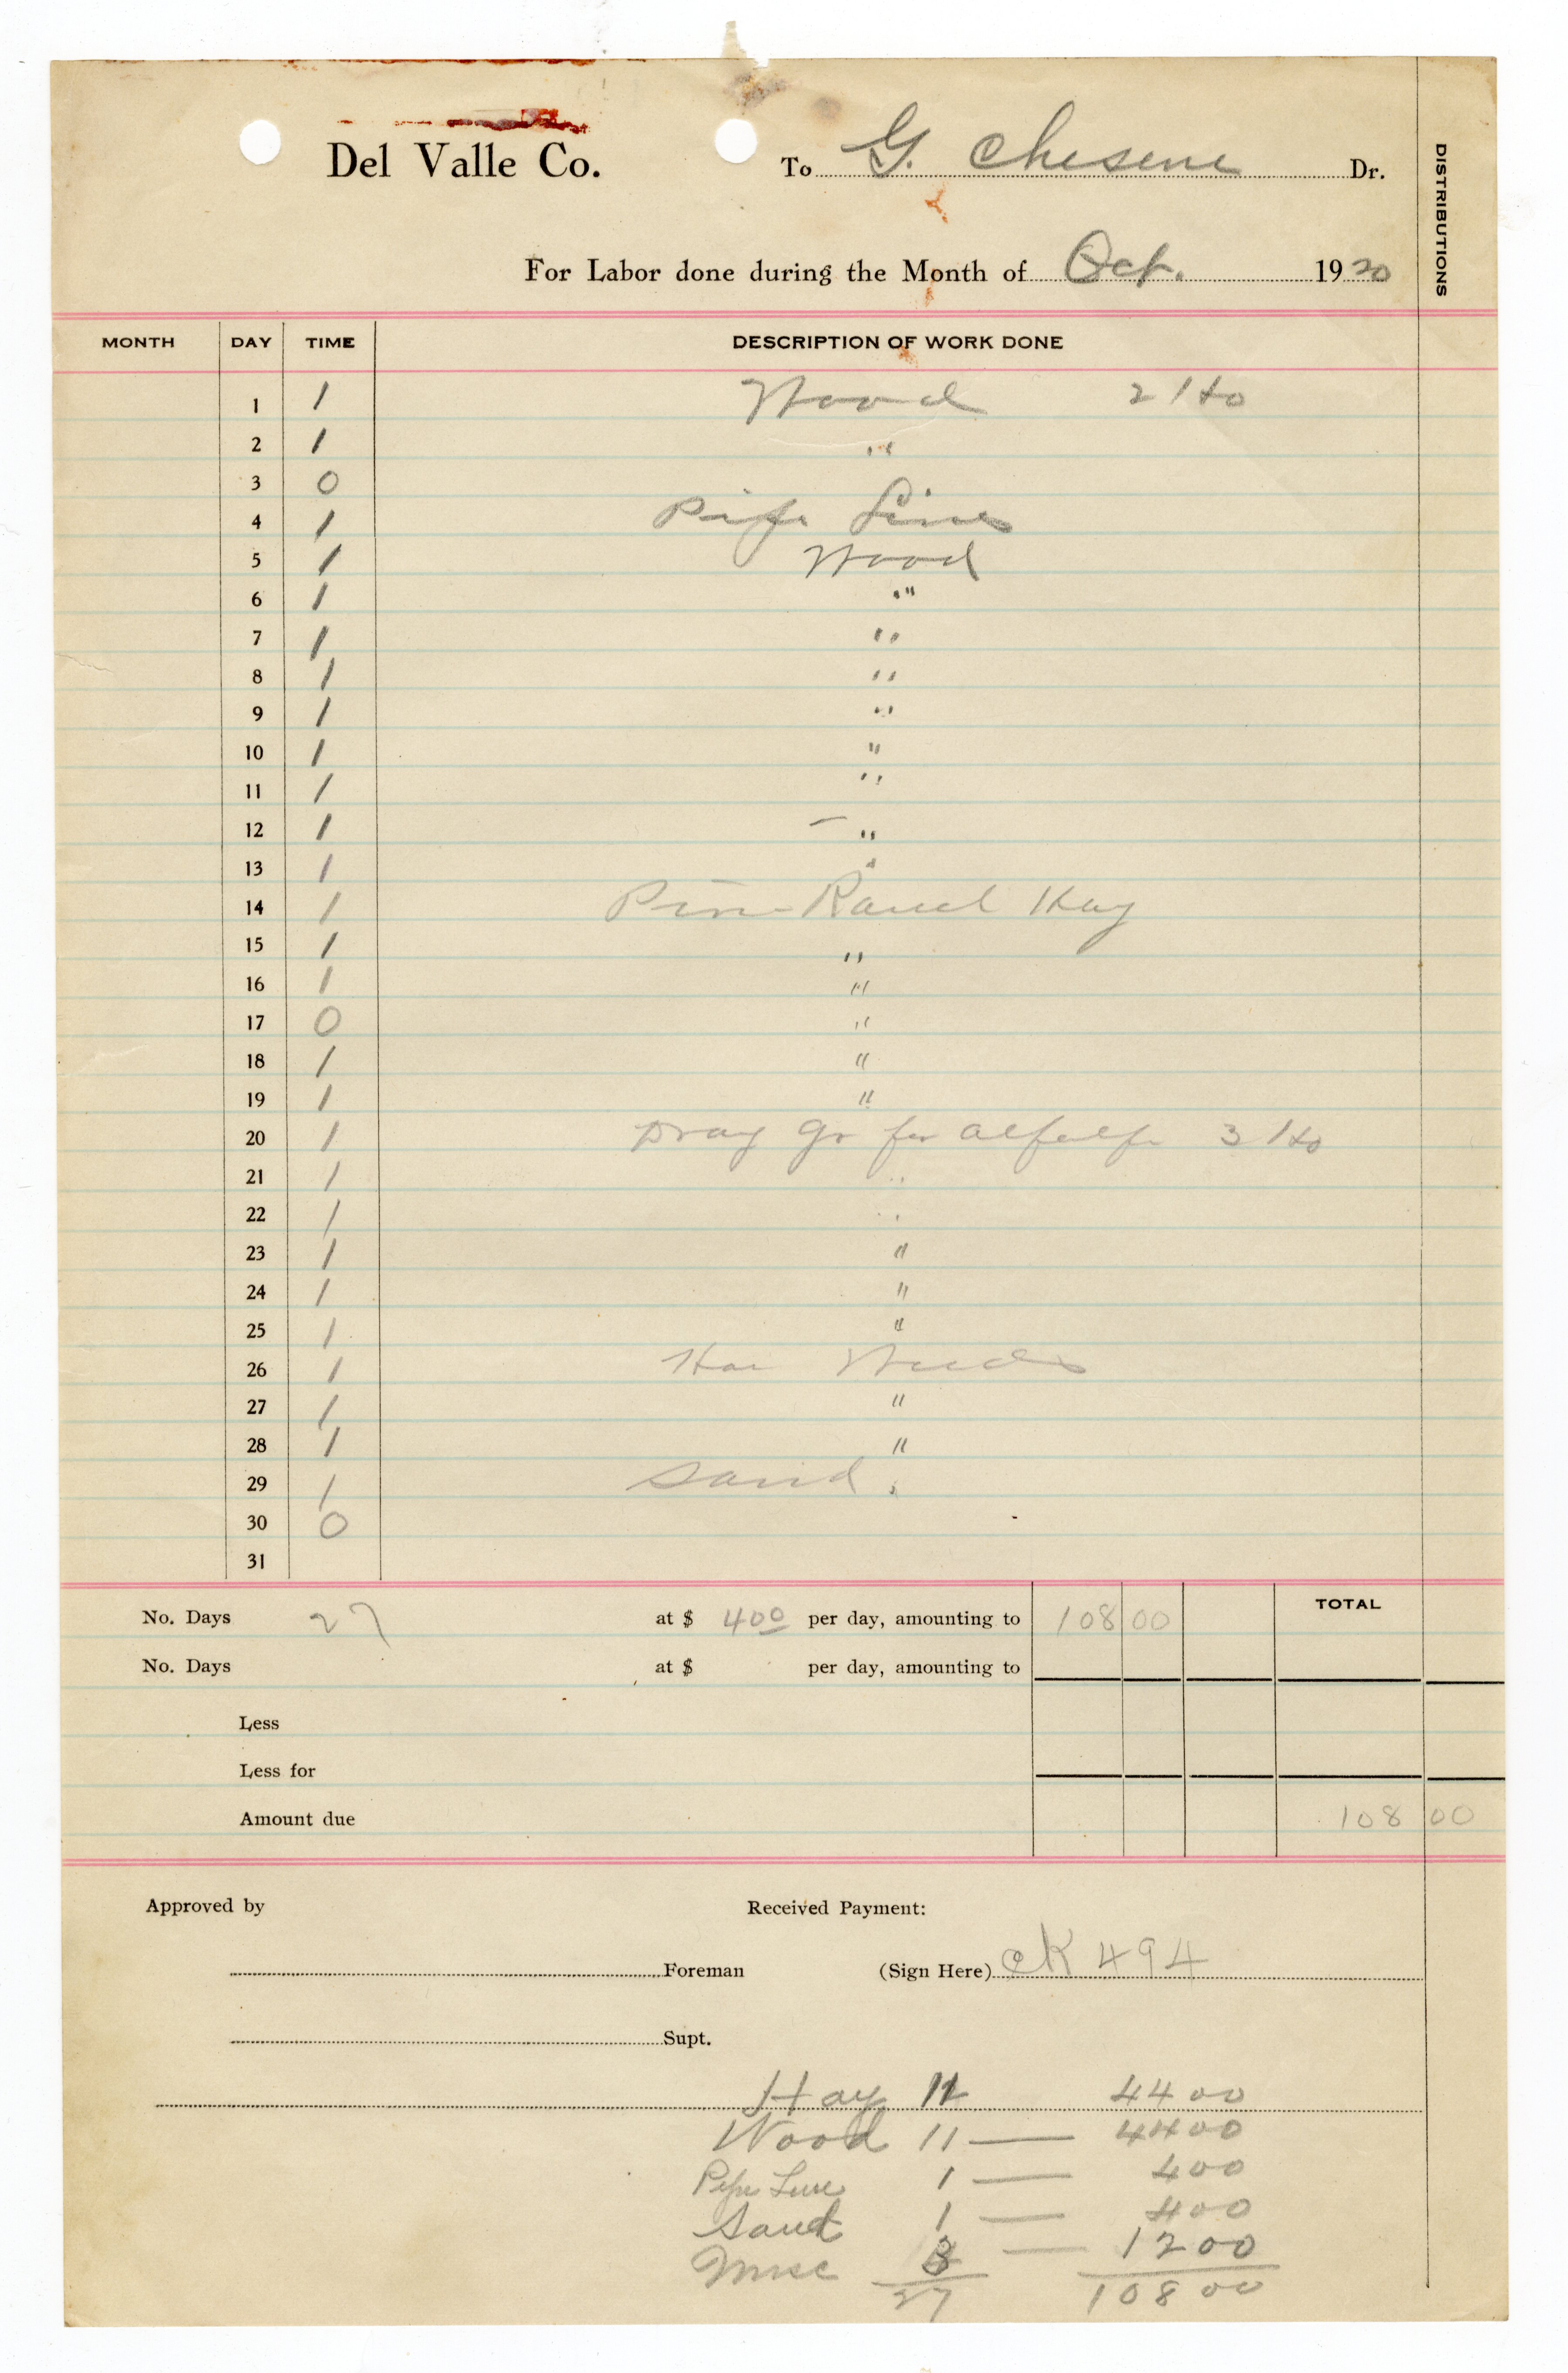 Del Valle Co. To G. Chesene Dr.
DISTRIBUTIONS
For Labor done during the Month of Oct. 1920
MONTH DAY TIME DESCRIPTION OF WORK DONE
1 1 Wood 2 Ho
2 1 "
3 0
4 1 Pipe Lines
5 1 Wood
6 1 "
7 1 "
8 1 "
9 1 "
10 1 "
11 1 "
12 1 "
13 1 "
14 1 Ranch Hay
15 1 "
16 1 "
17 0 "
18 1 "
19 1 "
20 1 Drag gr for alfalfa 3 Ho
21 1 "
22 1 "
23 1 "
24 1 "
25 1 "
26 1 Weeds
27 1 "
28 1 "
29 1 Sand.
30 0
31
No. Days 27 at $ 4.00 per day, amounting to 108 00 TOTAL
No. Days at $ per day, amounting to
Less
Less for
Amount due 108 00
Approved by Received Payment:
Foreman (Sign Here) CK 494
Supt.
Hay 11 44 00
Wood 11 — 44 00
Pipe Line 1 — 4 00
Sand 1 — 4 00
Misc 3 — 12 00
27 108 00